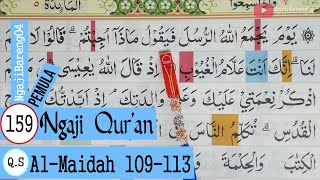 NgajiBareng04
يَوْمَ يَجْمَعُ اللّٰهُ الرُّسُلَ فَيَقُوْلُ مَاذَآ اُجِبْتُمْ ۗ قَالُوْا لَا
لَنَا ۗ اِنَّكَ اَنْتَ عَلَّامُ الْغُيُوْبِ اِذْ قَالَ اللّٰهُ يٰعِيْسَى
اذْكُرْ نِعْمَتِيْ عَلَيْكَ وَعَلٰى وَالِدَتِكَ ۘ اِذْ اَيَّدْتُّكَ
PEMULA
159 Ngaji Qur'an
الْقُدُسِ ۗ تُكَلِّمُ النَّاسَ فِى
Q.S Al-Maidah 109-113
الْكِتٰبَ وَالْحِكْمَةَ